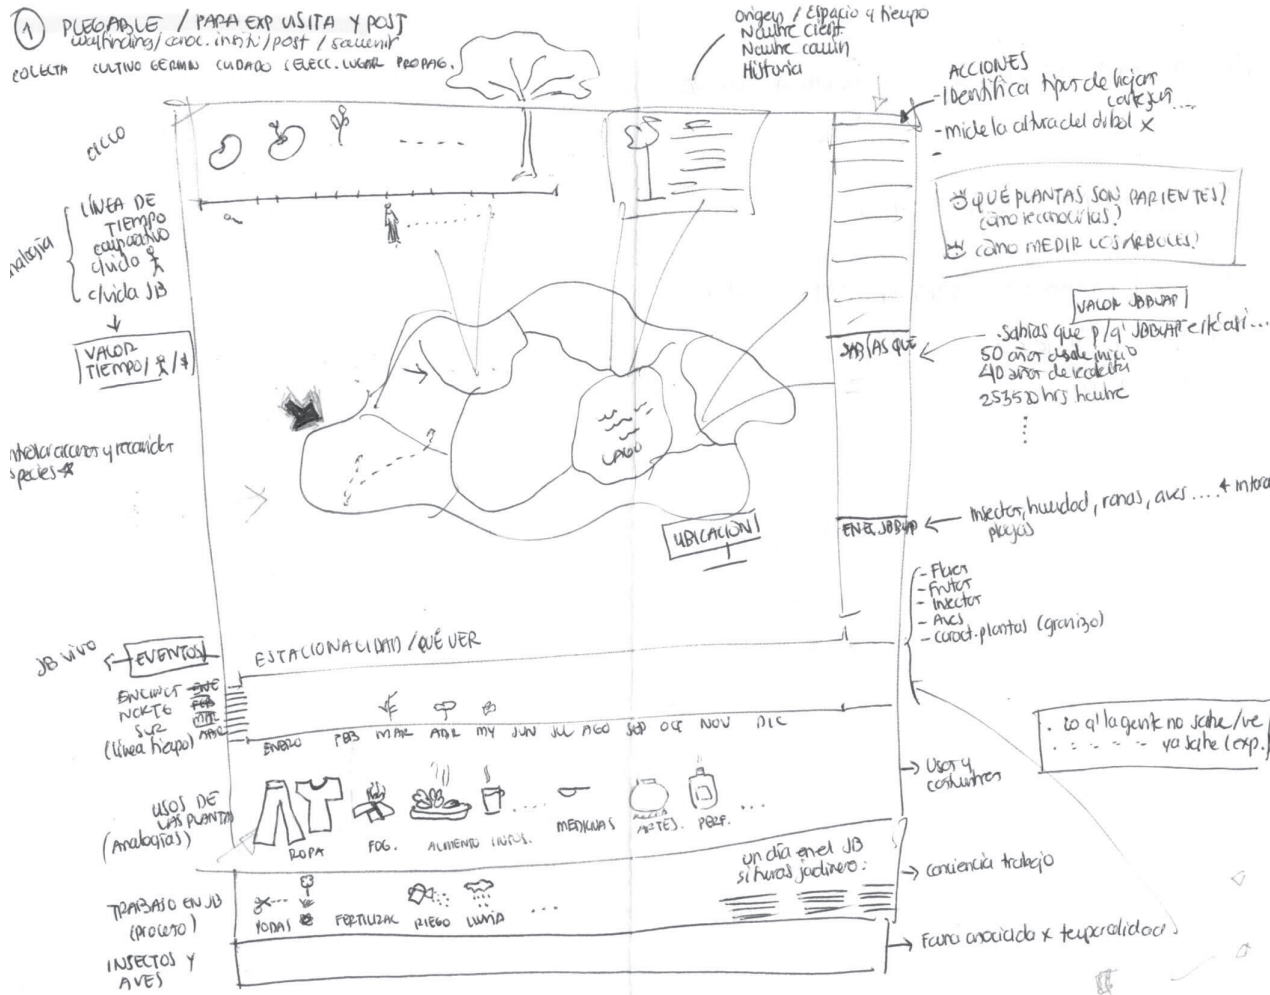 ① PLEGABLE / PARA EXP VISITA Y POST
wayfinding/conoc. instit/post / souvenir
COLECTA CULTIVO GERMIN CUIDADO SELECC. LUGAR PROPAG.
Origen / Espacio y tiempo
Nombre cientf.
Nombre común
Historia
ACCIONES
- Identifica tipos de hojas
cortezas ....
- mide la altura del árbol x
-
CICLO
LÍNEA DE
TIEMPO
comparativo
c/vida
c/vida JB
VALOR
TIEMPO/ /$
QUÉ PLANTAS SON PARIENTES?
cómo reconocerlas?
CÓMO MEDIR LOS ÁRBOLES?
VALOR JBBUAP
. Sabías que p/q' JBBUAP esté así ...
50 años desde inicio
40 años de colecta
253520 hrs hombre
SABÍAS QUE
LAGO
UBICACIÓN
EN EL JBBUAP
Insectos, humedad, ranas, aves ....
plagas
- Flores
- Frutos
- Insectos
- Aves
- caract. plantas (granizo)
JB vivo
EVENTOS
ESTACIONALIDAD / QUÉ VER
ENE
NORTE FEB
SUR MAR
(línea tiempo) ABR
ENERO FEB MAR ABR MY JUN JUL AGO SEP OCT NOV DIC
. lo q' la gente no sabe/ve
. - - - - ya sabe (exp.)
USOS DE
LAS PLANTAS
(Analogías)
ROPA FOG. ALIMENTO INFUS. .... MEDICINAS ARTES. PERF. ...
Usos y
costumbres
TRABAJO EN JB
(proceso)
PODAS FERTILIZAC RIEGO LLUVIA ...
un día en el JB
si fueras jardinero:
conciencia trabajo
INSECTOS Y
AVES
Fauna asociada x temporalidad